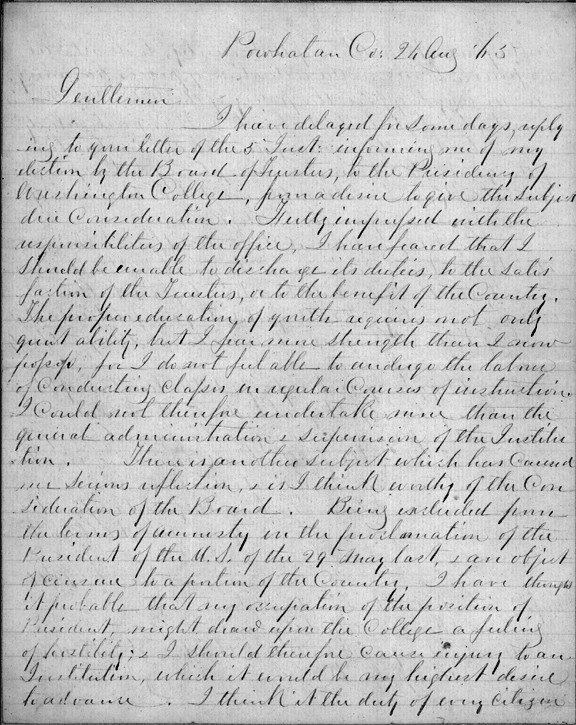 Powhatan Co: 24 Aug '65
Gentlemen
I have delayed for some days reply
ing to your letter of the 5 Inst: informing me of my
election by the Board of Trustees, to the Presidency of
Washington College, from a desire to give the subject
due Consideration. Fully impressed with the
responsibilities of the office, I have feared that I
should be unable to discharge its duties, to the satis
faction of the Trustees, or to the benefit of the Country.
The proper education of youth requires not only
great ability, but I fear more strength than I now
possess, for I do not feel able to undergo the labour
of Conducting Classes in regular Courses of instruction.
I Could not therefore undertake more than the
general administration & supervision of the Institu
tion. There is another subject which has Caused
me serious reflection, & is I think worthy of the Con
sideration of the Board. Being excluded from
the terms of amnesty in the proclamation of the
President of the U.S. of the 29 May last, & an object
of censure to a portion of the Country, I have thought
it probable that my occupation of the position of
President, might draw upon the College a feeling
of hostility; & I should therefore Cause injury to an
Institution, which it would be my highest desire
to advance. I think it the duty of every Citizen